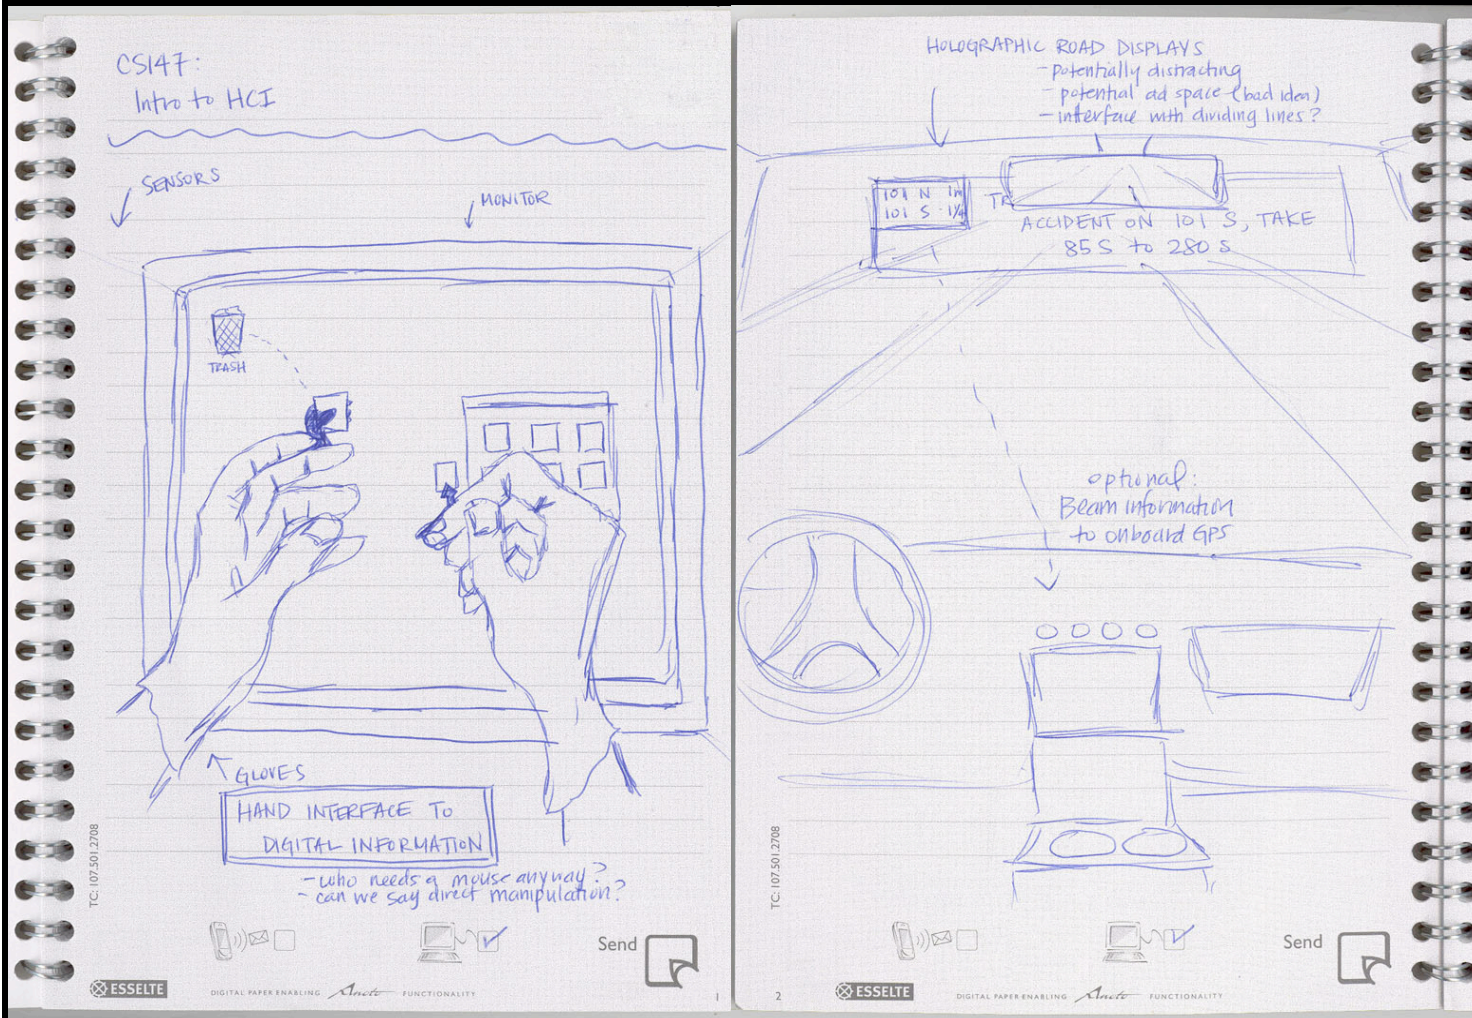 CS147:
Intro to HCI
SENSORS
MONITOR
TRASH
GLOVES
HAND INTERFACE TO
DIGITAL INFORMATION
- who needs a mouse anyway?
- can we say direct manipulation?
TC: 107.501.2708
Send
ESSELTE
DIGITAL PAPER ENABLING Anoto FUNCTIONALITY
1
HOLOGRAPHIC ROAD DISPLAYS
- potentially distracting
- potential ad space (bad idea)
- interface with dividing lines?
101 N 1m
101 S 1/4
TR
ACCIDENT ON 101 S, TAKE
85 S to 280 S
optional:
Beam information
to onboard GPS
TC: 107.501.2708
Send
2
ESSELTE
DIGITAL PAPER ENABLING Anoto FUNCTIONALITY